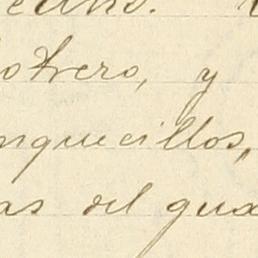 otrero, y
nquecillos,
as del gua